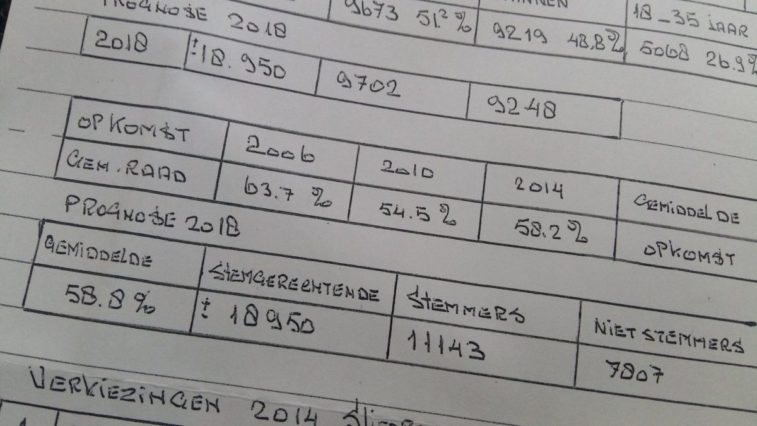 PROGNOSE 2018
9673 51,2% 9219 48,8% 5068 26.9%
18-35 JAAR
2018 ± 18.950 9702 9248
OPKOMST 2006 2010 2014 GEMIDDELDE
GEM. RAAD 63.7 % 54.5 % 58.2 % OPKOMST
PROGNOSE 2018
GEMIDDELDE STEMGERECHTENDE STEMMERS NIET STEMMERS
58.8% ± 18950 11143 7807
VERKIEZINGEN 2014